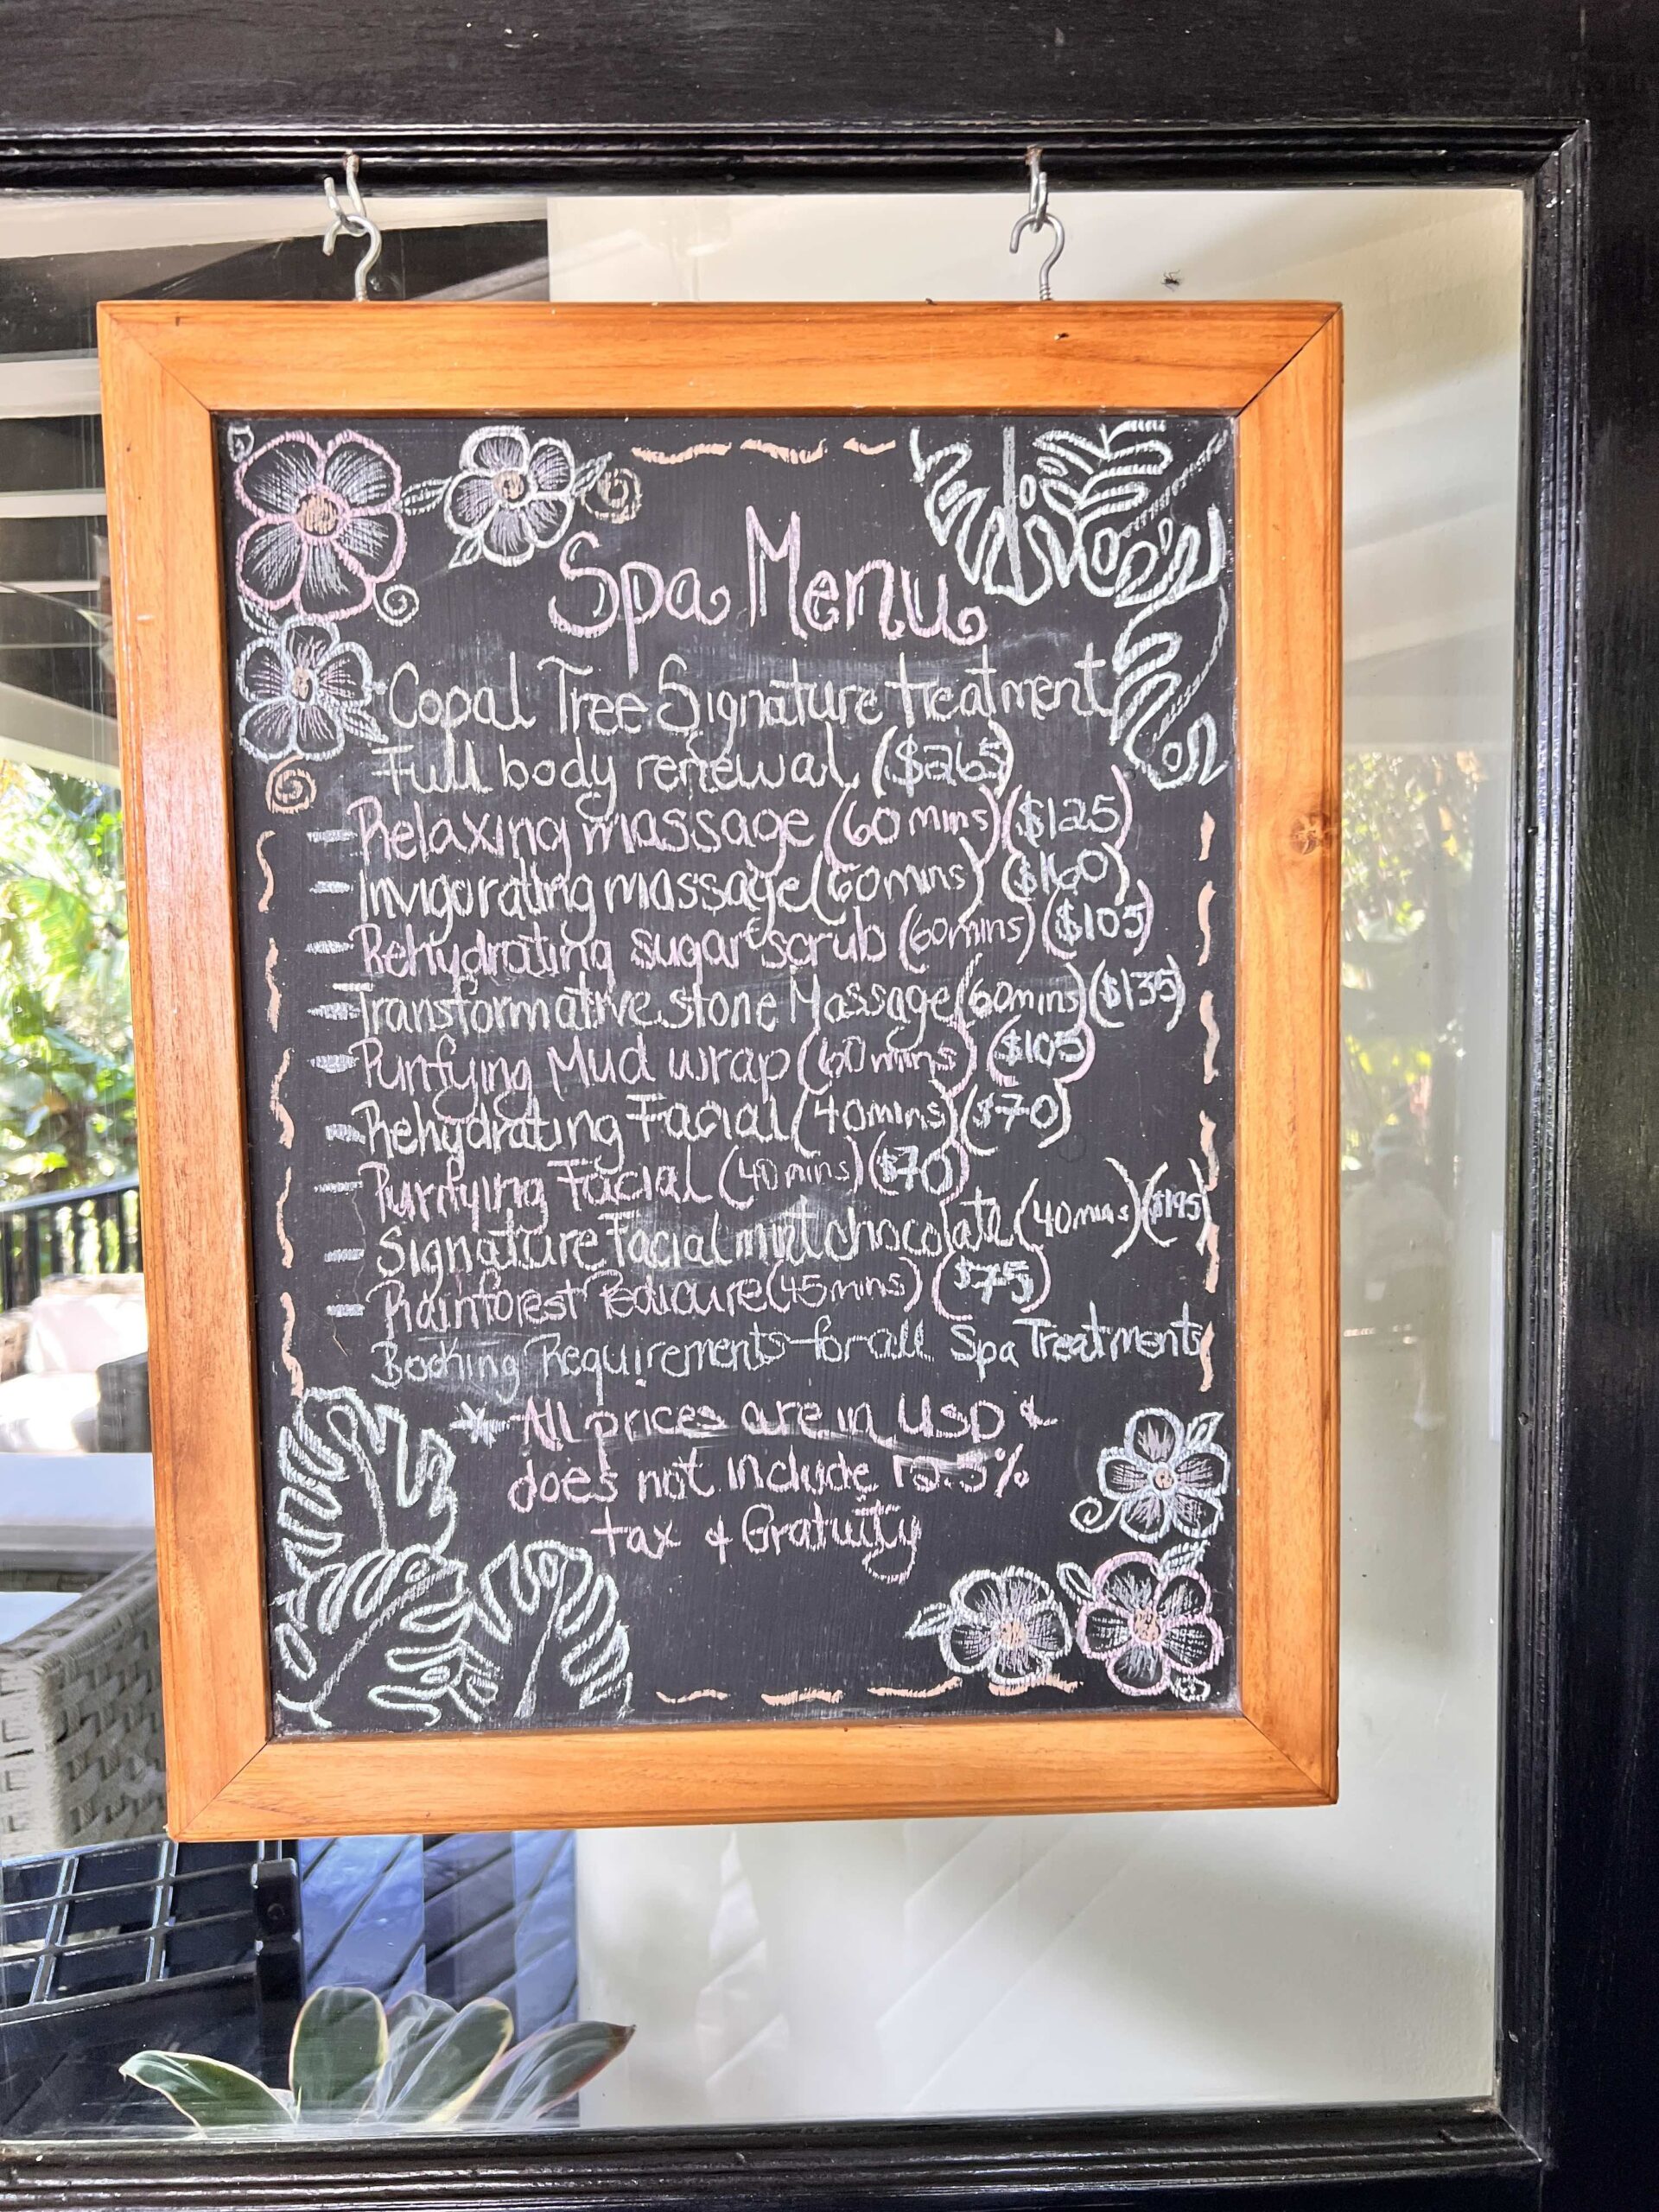 Spa Menu
Copal Tree Signature treatment
Full body renewal ($265)
- Relaxing massage (60 mins) ($125)
- Invigorating massage (60mins) ($160)
- Rehydrating sugar scrub (60mins) ($105)
- Transformative stone Massage (60mins) ($135)
- Purifying Mud wrap (60 mins) ($105)
- Rehydrating Facial (40mins) ($70)
- Purifying Facial (40 mins) ($70)
- Signature Facial mint chocolate (40mins)
- Rainforest Pedicure (45mins) ($75)
Booking Requirements for all Spa Treatments
* All prices are in USD &
does not include 12.5%
tax & Gratuity